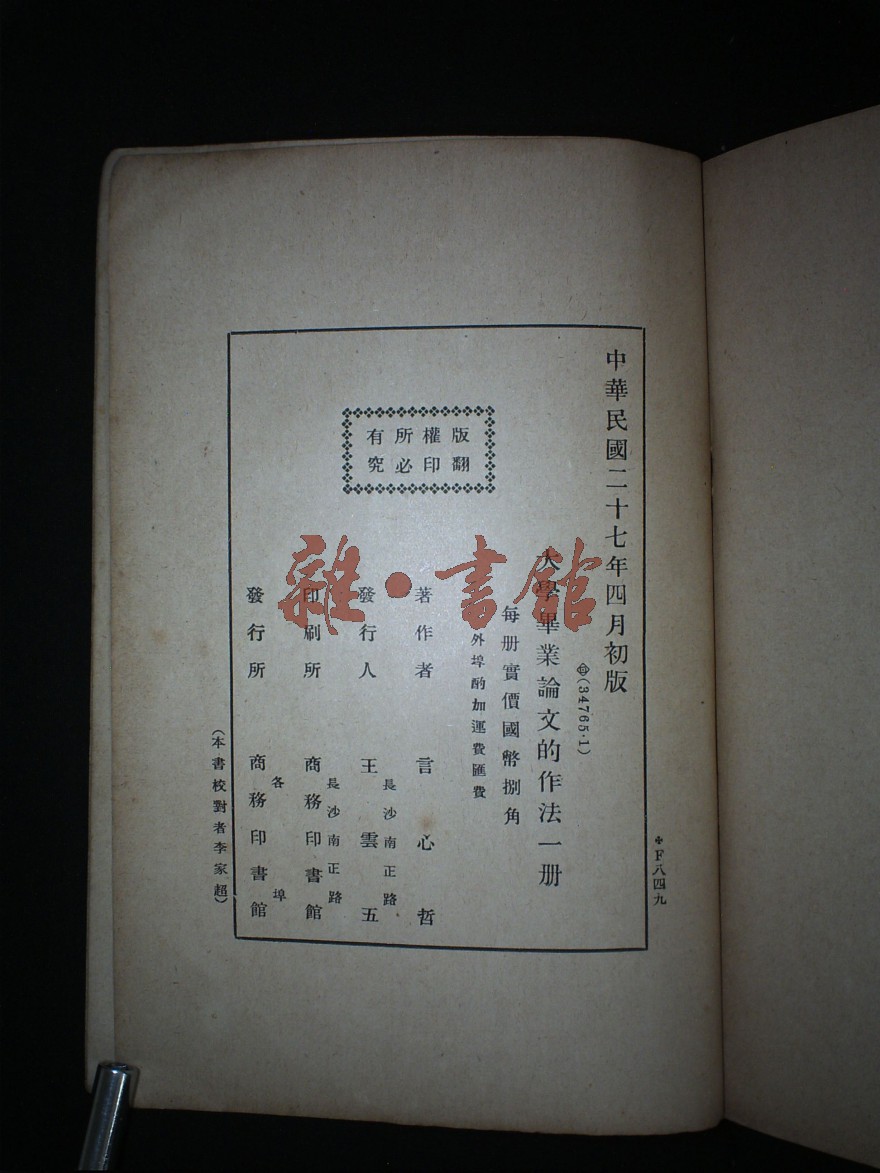 中華民國二十七年四月初版
(34765·1)
大學畢業論文的作法一册
每册實價國幣捌角
外埠酌加運費匯費
版權所有
翻印必究
著作者 言心哲
長沙南正路
發行人 王雲五
長沙南正路
印刷所 商務印書館
各埠
發行所 商務印書館
(本書校對者李家超)
F八四九
雜·書館